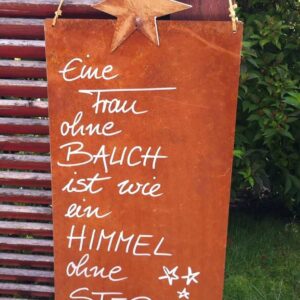 Eine
Frau
ohne
BAUCH
ist wie
ein
HIMMEL
ohne